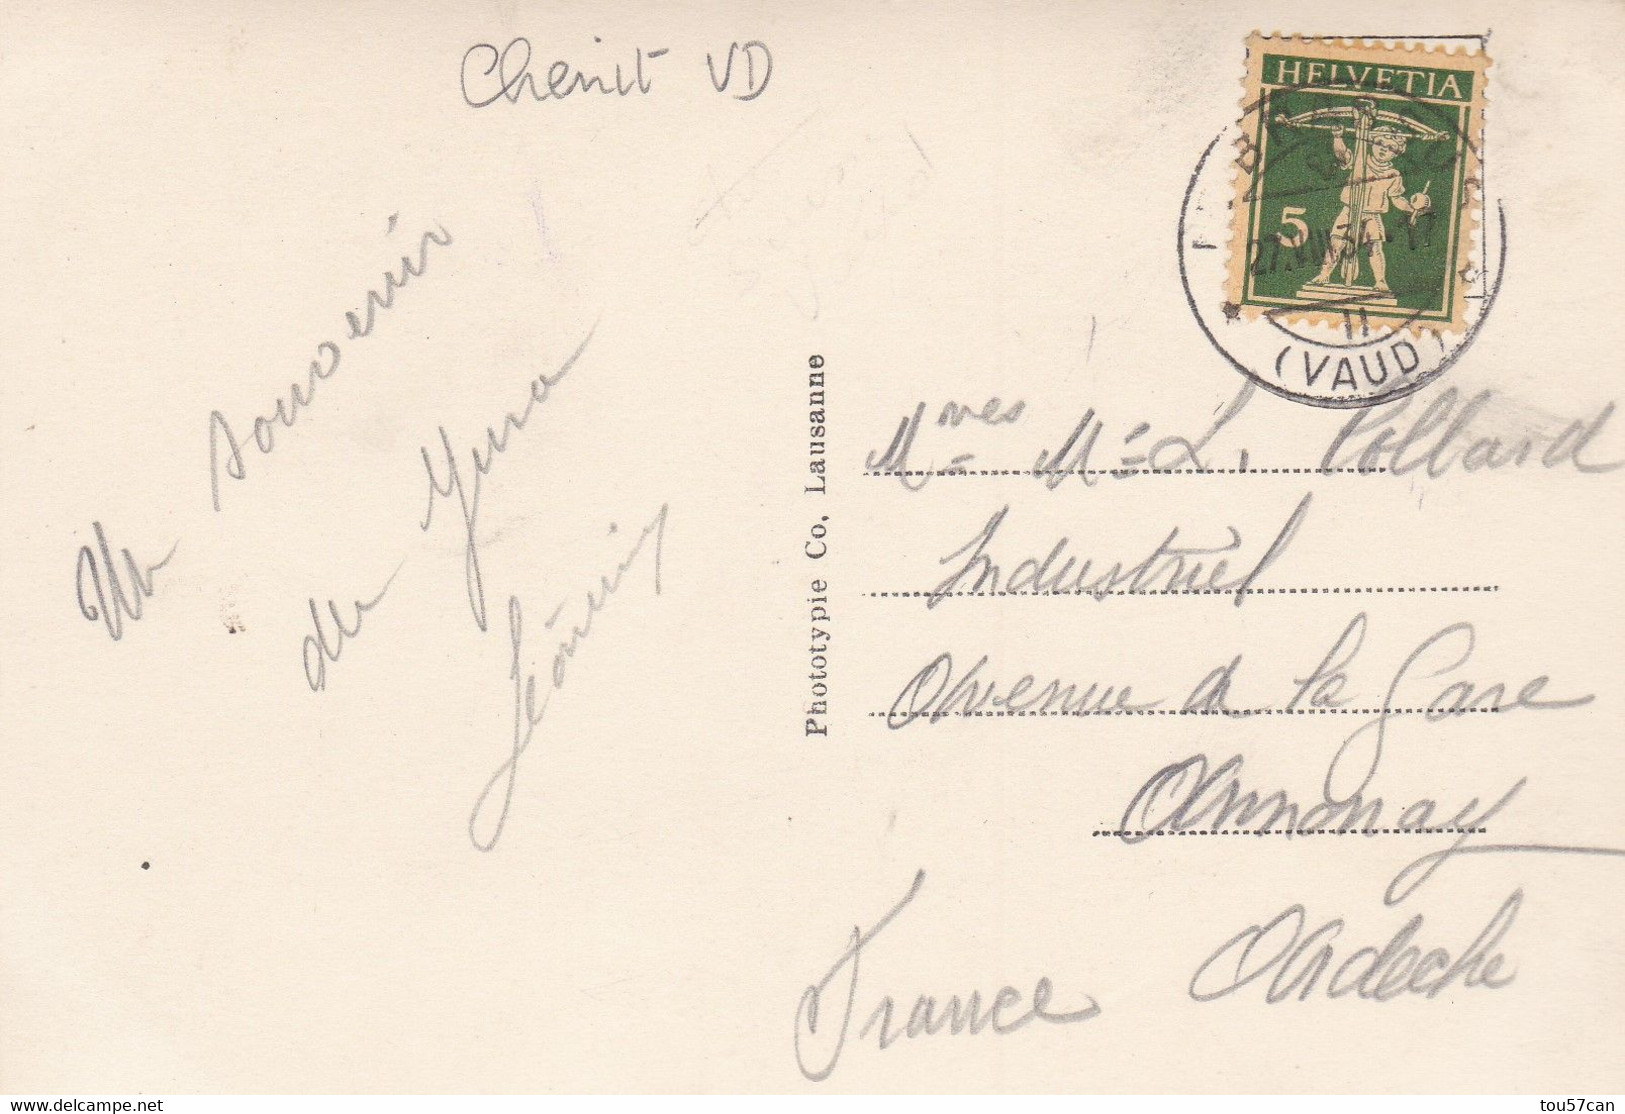 Chenit VD
HELVETIA
5
27.VIII 34-17
II
(VAUD)
Un souvenir
du Jura
Phototypie Co. Lausanne
Mr & Me L. Collard
Industriel
Avenue de la Gare
Annonay
Ardeche
France
www.delcampe.net
tou57can